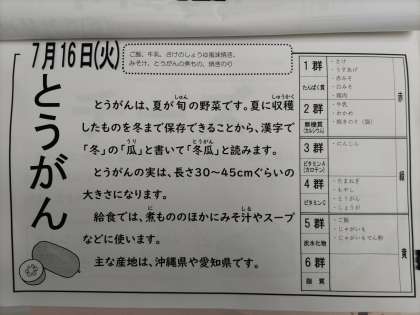 7月16日(火)
ご飯、牛乳、さけのしょうゆ風味焼き、
みそ汁、とうがんの煮もの、焼きのり
とうがん
とうがんは、夏が旬の野菜です。夏に収穫
しゅん
しゅうかく
したものを冬まで保存できることから、漢字で
「冬」の「瓜」と書いて「冬瓜」と読みます。
うり
とうがん
とうがんの実は、長さ30～45cmぐらいの
大きさになります。
給食では、煮もののほかにみそ汁やスープ
に
しる
などに使います。
主な産地は、沖縄県や愛知県です。
1群
たんぱく質
・さけ
・うすあげ
・赤みそ
・白みそ
・鶏肉
2群
無機質
(カルシウム)
・牛乳
・わかめ
・焼きのり
赤
3群
ビタミンA
(カロテン)
・にんじん
4群
ビタミンC
・たまねぎ
・もやし
・とうがん
・しょうが
緑
5群
炭水化物
・ご飯
・じゃがいも
・じゃがいもでん粉
6群
脂質
黄